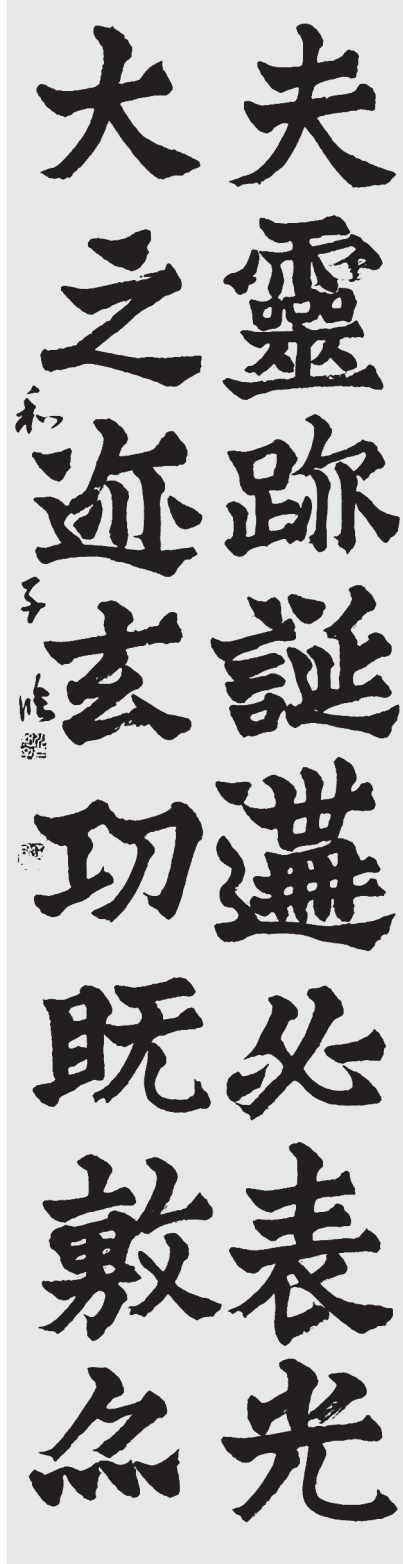 夫靈跡誕遘必表光
大之迹玄功既敷亦
和子臨